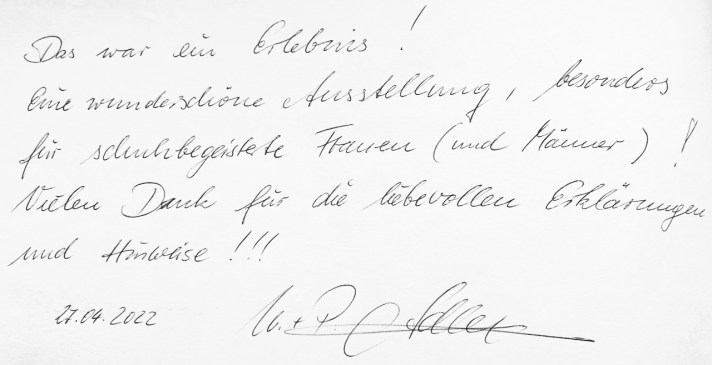 Das war ein Erlebnis!
Eine wunderschöne Ausstellung, besonders
für schuhbegeisterte Frauen (und Männer)!
Vielen Dank für die liebevollen Erklärungen
und Hinweise!!!
27.04.2022 + P. Adler